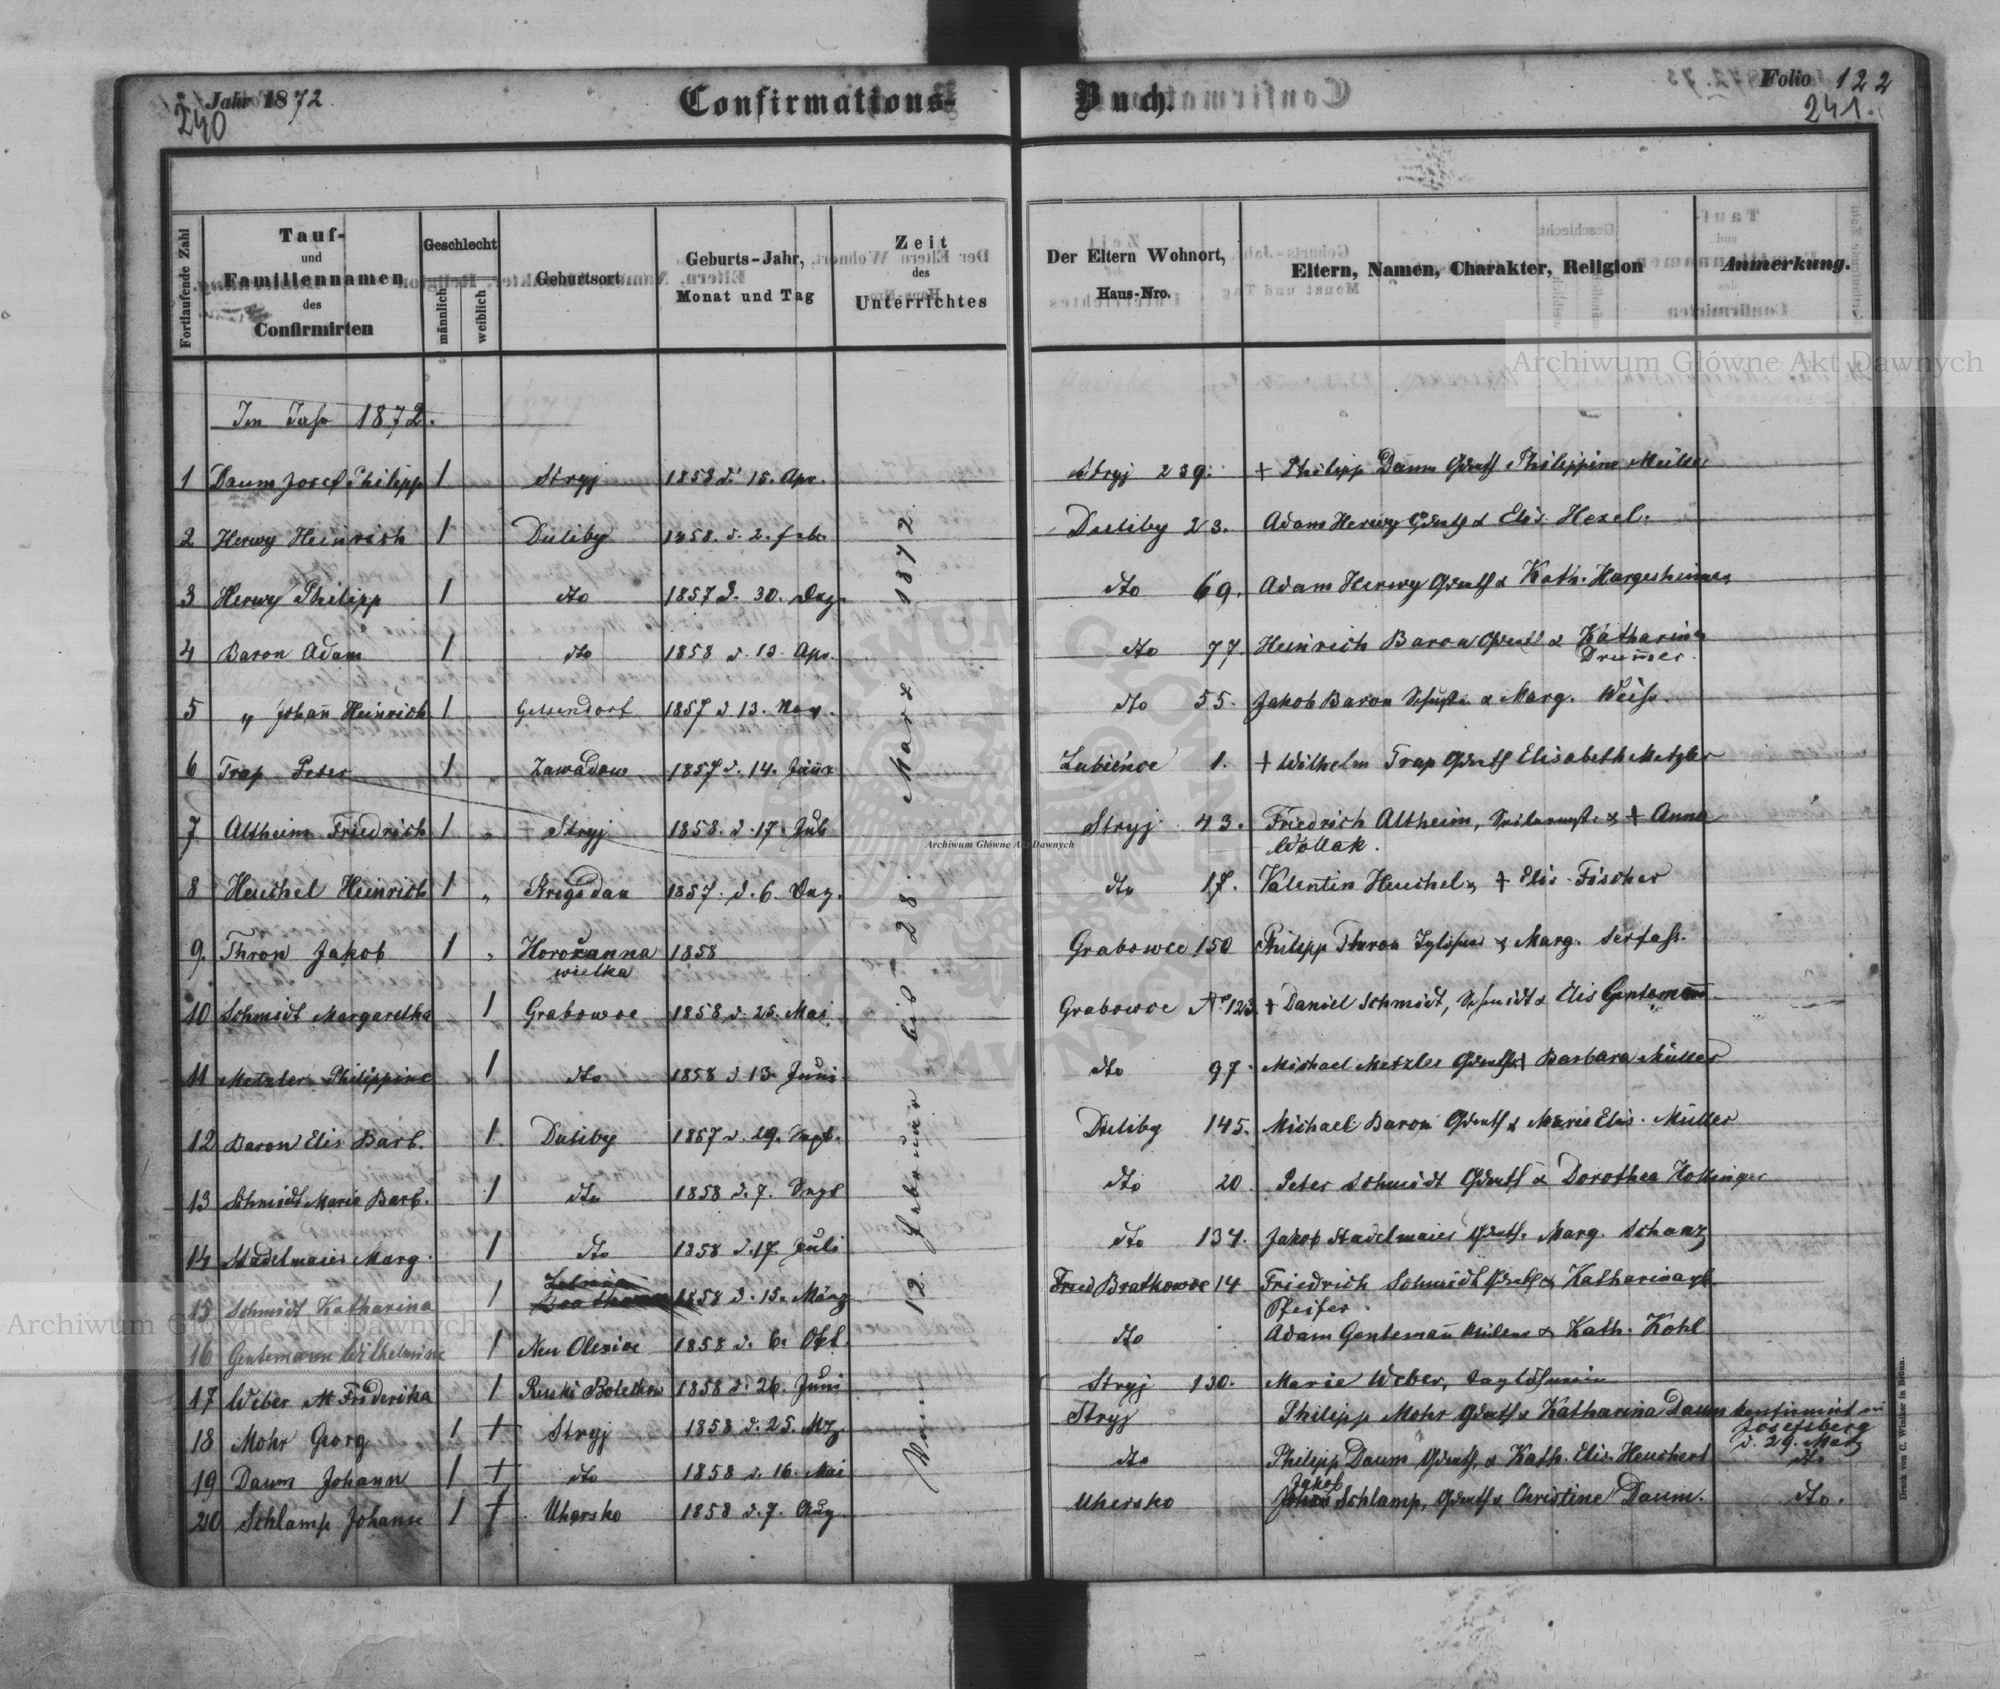 Jahr 1872
240
Confirmations-
Buch.
Folio 122
241.
Fortlaufende Zahl
Tauf-
und
Familiennamen
des
Confirmirten
Geschlecht
männlich
weiblich
Geburtsort
Geburts-Jahr,
Monat und Tag
Zeit
des
Unterrichtes
Der Eltern Wohnort,
Haus-Nro.
Eltern, Namen, Charakter, Religion
Anmerkung.
Im Jahr 1872.
Vom 12. Februar bis 28. März 1872
1 Daum Josef Philipp 1 Stryj 1858 d. 15. Apr. Stryj 239. + Philipp Daum Philippine Müller
2 Herwy Heinrich 1 Duliby 1858. d. 2. Feb. Duliby 23. Adam Herwy & Elis. Hexel.
3 Herwy Philipp 1 dto 1857 d. 30. Dez. dto 69. Adam Herwy & Kath. Hargesheimer
4 Baron Adam 1 dto 1858 d. 13 Apr. dto 77. Heinrich Baron & Katharina
Drum̄er.
5 " Johan̄ Heinrich 1 Gelsendorf 1857 d. 13. Nov. dto 55. Jakob Baron & Marg. Weiss.
6 Trap Peter 1 Zawadow 1857 d. 14. Lubience 1. + Wilhelm Trap Elisabeth Metzler
7 Altheim Friedrich 1 " Stryj 1858. d. 17. Feb Stryj 43. Friedrich Altheim, & + Anna
Wollak.
8 Heuchel Heinrich 1 " Brigidau 1857. d. 6. Dez. dto 17. Valentin Heuchel & + Elis. Fischer
9. Thron Jakob 1 " Horożanna 1858 Grabowce 150 Philipp Thron & Marg. Serfass.
wielka
10 Schmidt Margaretha 1 Grabowce 1858 d. 25. Mai Grabowce No 123. + Daniel Schmidt, Schmidt & Elis Gentemann.
11 Metzler Philippine 1 dto 1858 d 13 Juni dto 97. Michael Metzler + Barbara Müller
12 Baron Elis Barb. 1. Duliby 1857 d. 29. Sept. Duliby 145. Michael Baron & Marie Elis. Müller
13 Schmidt Marie Barb. 1 dto 1858 d. 7. Sept dto 20 Peter Schmidt & Dorothea Hottinger
14 Stadelmaier Marg. 1 dto 1858 d. 17. Juli dto 134. Jakob Stadelmaier Marg. Schanz
15 Schmidt Katharina 1 1858 d. 15. März Fried Bratkowce 14 Friedrich Schmidt & Katharina geb
Pfeifer.
16 Gentemann Wilhelmine 1 Neu Olexice 1858 d. 6. Okt. dto Adam Genteman̄ & Kath. Kohl
17 Weber M Friderika 1 Ruski Bolechow 1858 d. 26. Juni Stryj 130. Marie Weber, Taglöhnerin
18 Mohr Georg 1 + Stryj 1858 d. 25. Mz. Stryj Philipp Mohr & Katharina Daum konfirmirt in
Josefsberg
d. 29. März
19 Daum Johann 1 + dto 1858 d. 16. Mai dto Philipp Daum & Kath. Elis. Heuchert dto
20 Schlamp Johann 1 + Uhersko 1858 d. 7. Aug. Uhersko Jakob Schlamp, & Christine Daum. dto.
Druck von C. Winiker in Brünn.
Archiwum Główne Akt Dawnych
Archiwum Główne Akt Dawnych
Archiwum Główne Akt Dawnych
ARCHIWUM GŁÓWNE AKT DAWNYCH